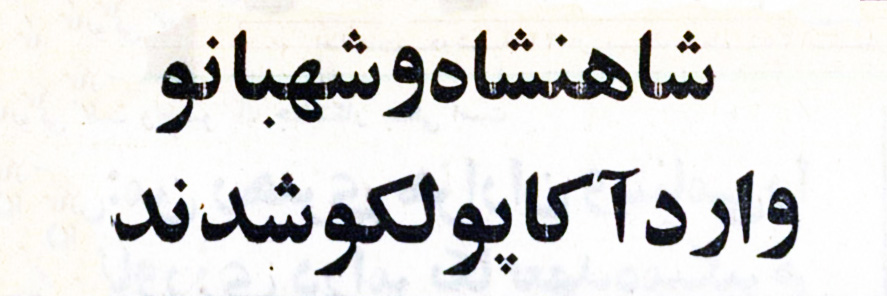 شاهنشاه و شهبانو
وارد آکاپولکو شدند